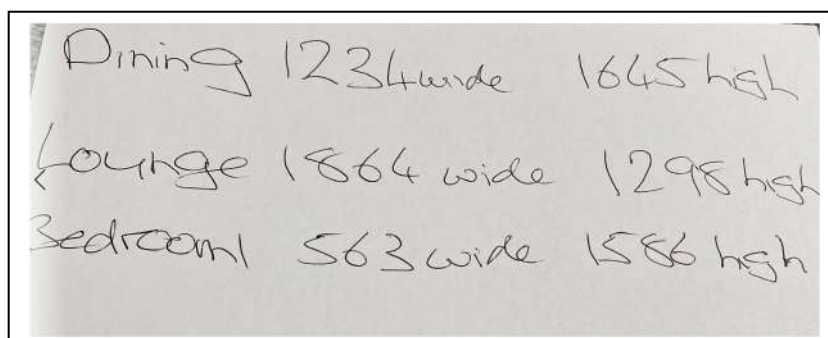 Dining 1234 wide 1645 high
Lounge 1864 wide 1298 high
Bedroom 1 563 wide 1586 high